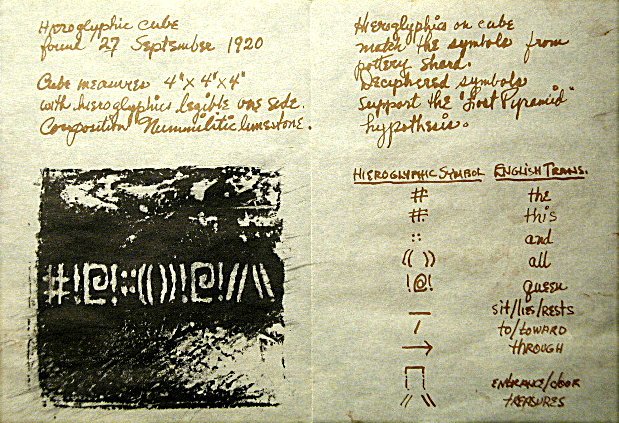 Hieroglyphic cube
found 27 September 1920
Cube measures 4"x 4"x 4"
with hieroglyphics legible one side.
Composition Nummilitic limestone.
#!@!::(( ))!@!// \\
Hieroglyphics on cube
match the symbols from
pottery shard.
Deciphered symbols
support the "Lost Pyramid"
hypothesis.
HIEROGLYPHIC SYMBOL ENGLISH TRANS.
# the
#: this
:: and
(( )) all
!@! queen
— sit/lies/rests
/ to/toward
→ through
⊓ entrance/door
// \\ treasures